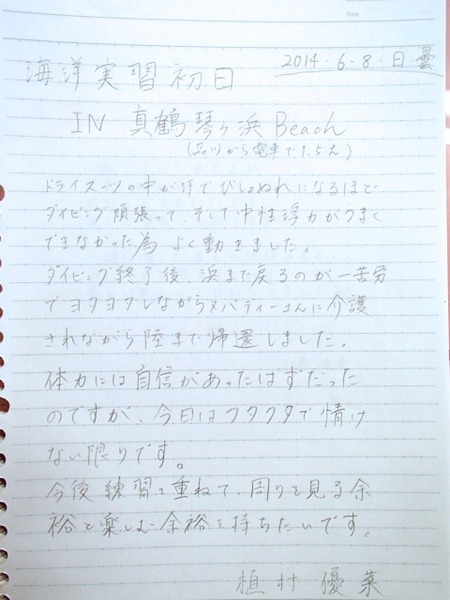 Date
2014・6・8・日 曇
海洋実習初日
IN 真鶴琴ヶ浜 Beach
(品川から電車で1.5h)
ドライスーツの中が汗でびしょぬれになるほど
ダイビング頑張って、そして中性浮力がうまく
できなかった為 よく動きました。
ダイビング終了後、浜まで戻るのが一苦労
でヨタヨタしながら バディーさんに介護
されながら陸まで帰還しました。
体力には自信があったはずだった
のですが、今日はクタクタで情け
ない限りです。
今後練習を重ねて、周りを見る余
裕と楽しむ余裕を持ちたいです。
植村 優菜